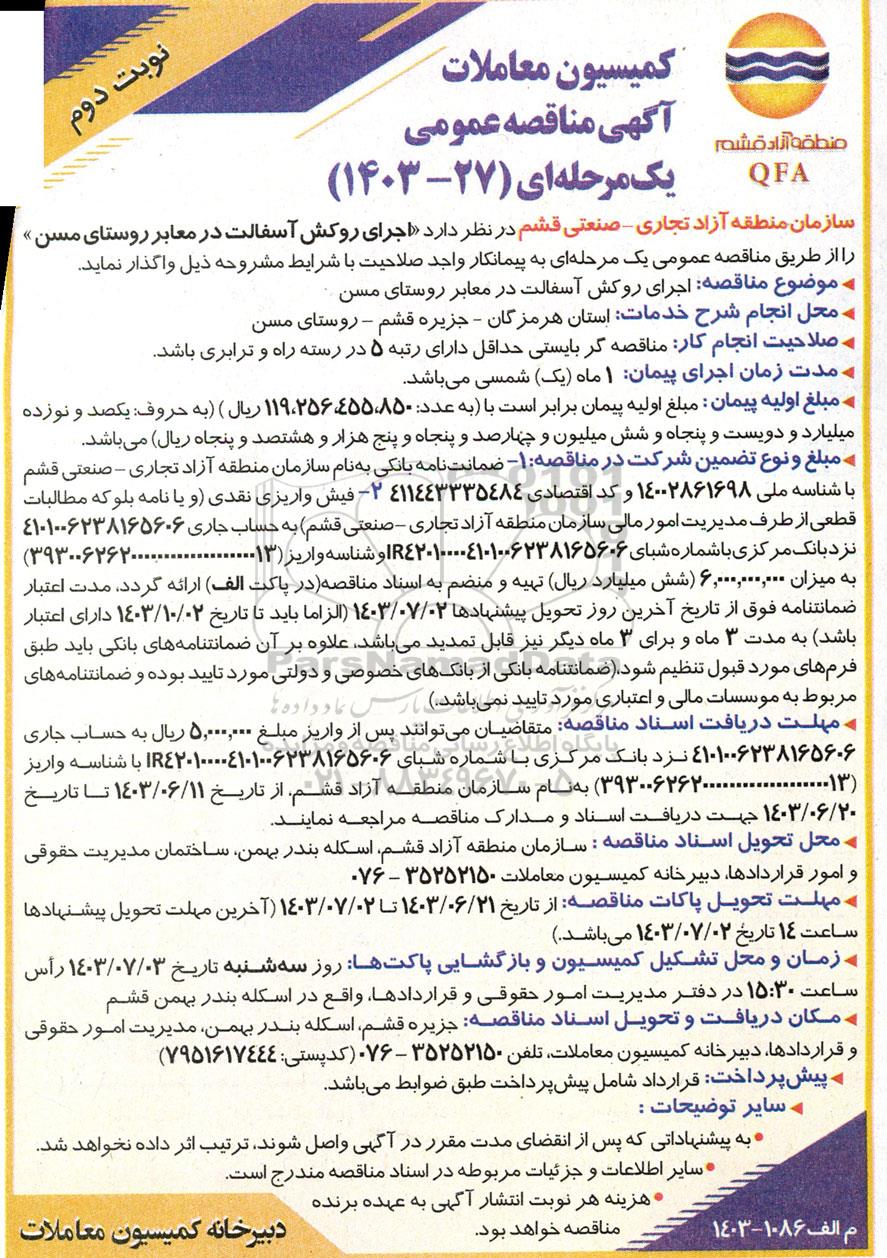 نوبت دوم
کمیسیون معاملات
آگهی مناقصه عمومی
یک‌مرحله‌ای (۲۷-۱۴۰۳)
منطقه آزاد قشم
QFA
سازمان منطقه آزاد تجاری – صنعتی قشم در نظر دارد «اجرای روکش آسفالت در معابر روستای مسن»
را از طریق مناقصه عمومی یک مرحله‌ای به پیمانکار واجد صلاحیت با شرایط مشروحه ذیل واگذار نماید.
موضوع مناقصه: اجرای روکش آسفالت در معابر روستای مسن
محل انجام شرح خدمات: استان هرمزگان - جزیره قشم – روستای مسن
صلاحیت انجام کار: مناقصه گر بایستی حداقل دارای رتبه ۵ در رسته راه و ترابری باشد.
مدت زمان اجرای پیمان: ۱ ماه (یک) شمسی می‌باشد.
مبلغ اولیه پیمان: مبلغ اولیه پیمان برابر است با (به عدد: ۱۱۹،۲۵۶،۴۵۵،۸۵۰ ریال) (به حروف: یکصد و نوزده
میلیارد و دویست و پنجاه و شش میلیون و چهارصد و پنجاه و پنج هزار و هشتصد و پنجاه ریال) می‌باشد.
مبلغ و نوع تضمین شرکت در مناقصه: ۱- ضمانت‌نامه بانکی به‌نام سازمان منطقه آزاد تجاری – صنعتی قشم
با شناسه ملی ۱۴۰۰۲۸۶۱۶۹۸ و کد اقتصادی ۴۱۱۴۴۳۳۳۵۴۸۴ ۲- فیش واریزی نقدی (و یا نامه بلوکه مطالبات
قطعی از طرف مدیریت امور مالی سازمان منطقه آزاد تجاری – صنعتی قشم) به حساب جاری ۴۱۰۱۰۰۶۲۳۸۱۶۵۶۰۶
نزد بانک مرکزی با شماره شبای IR۴۲۰۱۰۰۰۰۴۱۰۱۰۰۶۲۳۸۱۶۵۶۰۶ و شناسه واریز
به میزان ۶,۰۰۰,۰۰۰,۰۰۰ (شش میلیارد ریال) تهیه و منضم به اسناد مناقصه (در پاکت الف) ارائه گردد، مدت اعتبار
ضمانتنامه فوق از تاریخ آخرین روز تحویل پیشنهادها ۱۴۰۳/۰۷/۰۲ (الزاما باید تا تاریخ ۱۴۰۳/۱۰/۰۲ دارای اعتبار
باشد) به مدت ۳ ماه و برای ۳ ماه دیگر نیز قابل تمدید می‌باشد، علاوه بر آن ضمانتنامه‌های بانکی باید طبق
فرم‌های مورد قبول تنظیم شود،(ضمانتنامه بانکی از بانک‌های خصوصی و دولتی مورد تایید بوده و ضمانتنامه‌های
مربوط به موسسات مالی و اعتباری مورد تایید نمی‌باشد.)
مهلت دریافت اسناد مناقصه: متقاضیان می‌توانند پس از واریز مبلغ ۵,۰۰۰,۰۰۰ ریال به حساب جاری
۴۱۰۱۰۰۶۲۳۸۱۶۵۶۰۶ نزد بانک مرکزی با شماره شبای IR۴۲۰۱۰۰۰۰۴۱۰۱۰۰۶۲۳۸۱۶۵۶۰۶ با شناسه واریز
به‌نام سازمان منطقه آزاد قشم، از تاریخ ۱۴۰۳/۰۶/۱۱ تا تاریخ
۱۴۰۳/۰۶/۲۰ جهت دریافت اسناد و مدارک مناقصه مراجعه نمایند.
محل تحویل اسناد مناقصه : سازمان منطقه آزاد قشم، اسکله بندر بهمن، ساختمان مدیریت حقوقی
و امور قراردادها، دبیرخانه کمیسیون معاملات ۳۵۲۵۲۱۵۰ – ۰۷۶
مهلت تحویل پاکات مناقصه: از تاریخ ۱۴۰۳/۰۶/۲۱ تا ۱۴۰۳/۰۷/۰۲ (آخرین مهلت تحویل پیشنهادها
ساعت ۱۴ تاریخ ۱۴۰۳/۰۷/۰۲ می‌باشد.)
زمان و محل تشکیل کمیسیون و بازگشایی پاکت‌ها: روز سه‌شنبه تاریخ ۱۴۰۳/۰۷/۰۳ رأس
ساعت ۱۵:۳۰ در دفتر مدیریت امور حقوقی و قراردادها، واقع در اسکله بندر بهمن قشم
مکان دریافت و تحویل اسناد مناقصه: جزیره قشم، اسکله بندر بهمن، مدیریت امور حقوقی
و قراردادها، دبیرخانه کمیسیون معاملات، تلفن ۳۵۲۵۲۱۵۰ – ۰۷۶ (کدپستی: ۷۹۵۱۶۱۷۴۴۴)
پیش‌پرداخت: قرارداد شامل پیش‌پرداخت طبق ضوابط می‌باشد.
سایر توضیحات :
• به پیشنهاداتی که پس از انقضای مدت مقرر در آگهی واصل شوند، ترتیب اثر داده نخواهد شد.
• سایر اطلاعات و جزئیات مربوطه در اسناد مناقصه مندرج است.
• هزینه هر نوبت انتشار آگهی به عهده برنده
مناقصه خواهد بود.
م الف ۱۰۸۶-۱۴۰۳
دبیرخانه کمیسیون معاملات
ParsNamadData
پایگاه اطلاع رسانی مناقصه و مزایده
۰۲۱-۸۸۳۴۹۶۷۰-۵